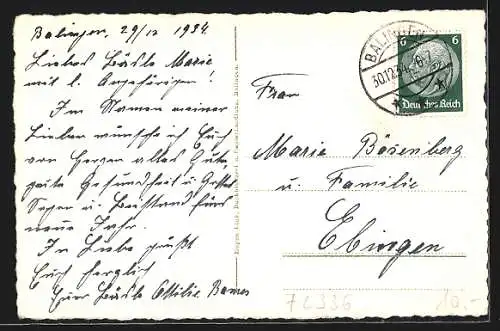 Balingen, 29/12 1934.
Liebes Bäsle Marie
mit l. Angehörigen!
Im Namen meiner
Lieben wünsche ich Euch
von Herzen alles Gute,
gute Gesundheit u. Gottes
Segen u. Beistand fürs
neue Jahr.
In Liebe grüßt
Euch herzlich
Euer Bäsle Ottilie
BALINGEN
30.12.34
6 6
Deutsches Reich
Frau
Marie Bösenberg
u. Familie
Ebingen
72336
10,-